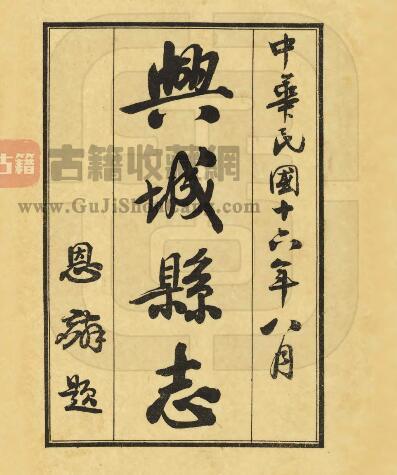 中華民國十六年八月
興城縣志
恩麟題
古籍
古籍收藏網